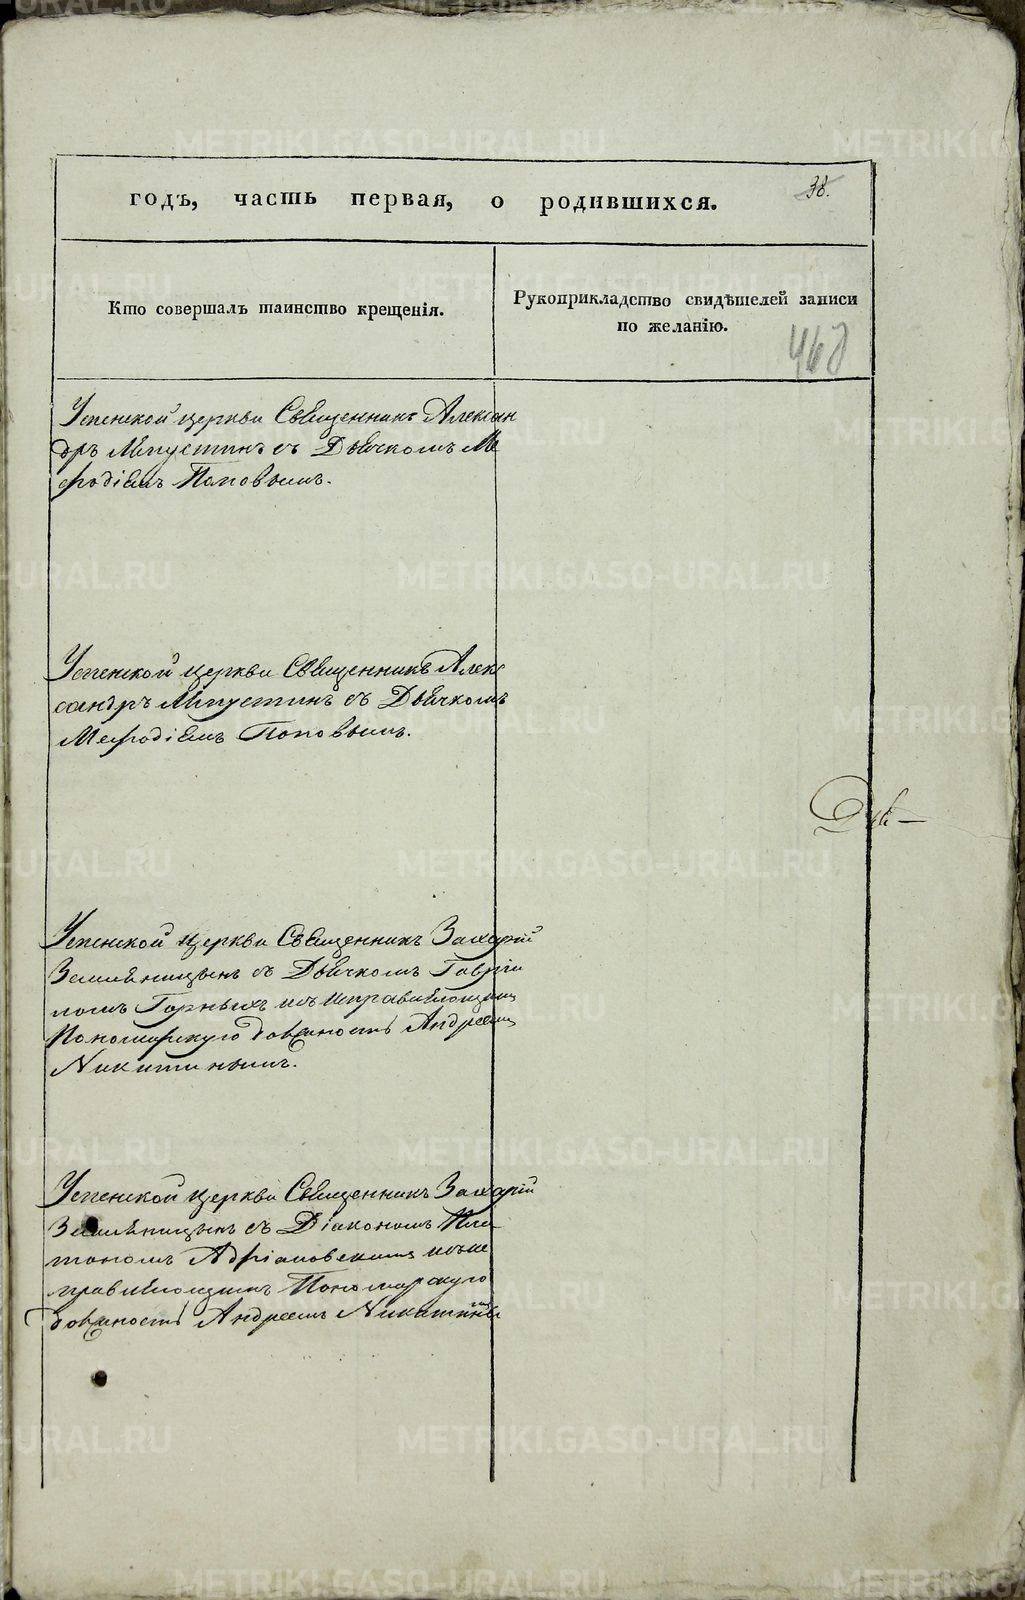 годъ, часть первая, о родившихся.
38.
Кто совершалъ таинство крещенія.
Рукоприкладство свидѣтелей записи
по желанію.
468
Успенской церкви Священникъ Алексан
дръ Мпустинъ съ Дьячкомъ Ме
ѳодіемъ Поповымъ.
Успенской церкви Священникъ Алекс
сандръ Мпустинъ съ Дьячкомъ
Меѳодіемъ Поповымъ.
Успенской церкви Священникъ Захарій
Земляницынъ съ Дьячкомъ Гаврїи
ломъ Горныхъ и исправляющимъ
Пономарскую должность Андреемъ
Никитинымъ.
Успенской церкви Священникъ Захарій
Земляницынъ съ Діакономъ Пла
тономъ Адріановскимъ и ис
правляющимъ Пономарскую
должность Андреемъ Никитинымъ
METRIKI.GASO-URAL.RU